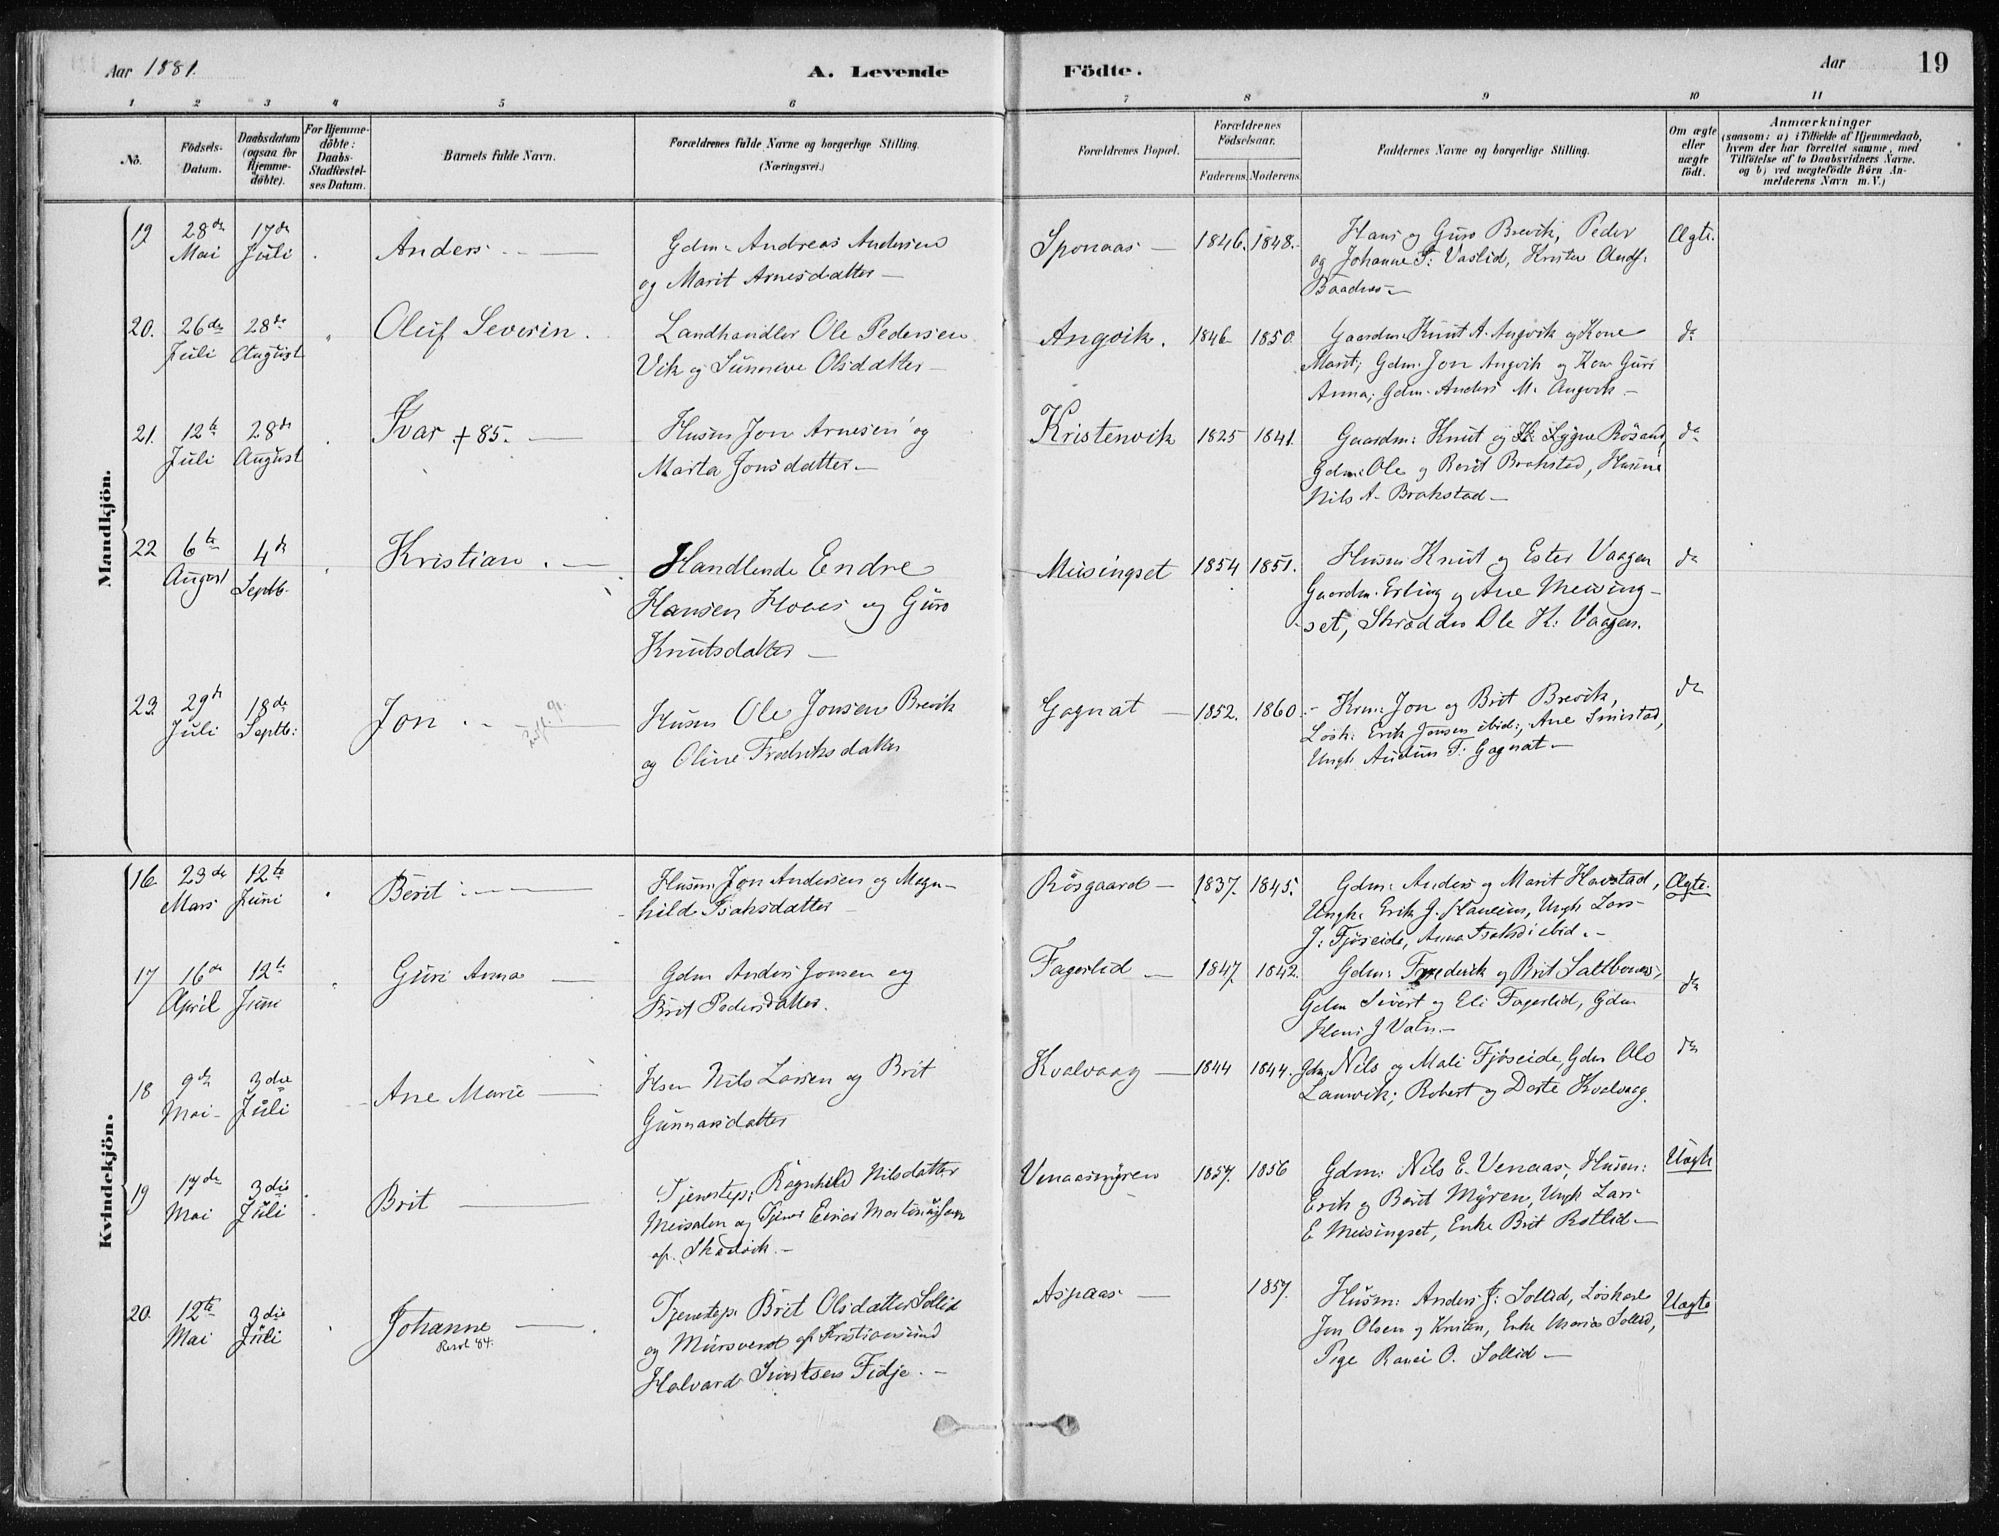 Aar 1881.
A. Levende Födte.
Aar
19
1 2 3 4 5 6 7 8 9 10 11
No.
Födsels-
Datum.
Daabsdatum
(ogsaa for
Hjemme-
döbte).
For Hjemme-
döbte:
Daabs-
Stadfæstel-
ses Datum.
Barnets fulde Navn.
Forældrenes fulde Navne og borgerlige Stilling.
(Næringsvei.)
Forældrenes Bopæl.
Forældrenes
Födselsaar.
Faderens. Moderens.
Faddernes Navne og borgerlige Stilling.
Om ægte
eller
uægte
födt.
Anmærkninger
(saasom: a) i Tilfælde af Hjemmedaab,
hvem der har forrettet samme, med
Tilföielse af to Daabsvidners Navne.
og b) ved uægtefödte Börn An-
melderens Navn m. V.)
Mandkjön.
19 28de Mai 17de Juli Anders
Gdm. Andreas Andersen
og Marit Arnesdatter
Sponaas 1846. 1848.
Hans og Guro Brevik, Peder
og Johanne Vaslid, Krister
Ægte.
20. 26de Juli 28de August Oluf Severin.
Landhandler Ole Pedersen
Vik og Sunneve Olsdatter
Angvik. 1846 1850.
Gaardm. Knut A. Angvik og Kone
Marit; Gdm. Jon Angvik og Kone Guri
Anna; Gdm. Anders M. Angvik
do
21. 12te Juli 28de August Ivar +85.
Husm Jon Arnesen og
Marta Jonsdatter
Kristenvik 1825 1841.
Gaardm: Knut og Sygne Rösand,
Gdm: Ole og Berit Brakstad, Husm
Nils A. Brakstad
do
22 6te August 4de Septb. Kristian.
Handlende Endre
Hansen Hoaas og Guro
Knutsdatter
Meisingset 1854 1851.
Husm Knut og Ester Vaagen
Gaardm. Erling og Ane Meising-
set, Skrædder Ole K. Vaagen.
do
23. 29de Juli 18de Septb: Jon.
Husm Ole Jonsen Brevik
og Oline Fredriksdatter
Gagnat 1852. 1860
Jon og Brit Brevik,
Lösk: Erik Jonsen ibid:, Ane Smistad,
Ungk Audun F. Gagnat
do
Kvindekjön.
16. 23de Mars 12te Juni Berit
Husm: Jon Andersen og Magn-
hild Isaksdatter
Rösgaard 1837. 1845.
Gdm: Anders og Marit Havstad,
Ungk. Erik J., Ungk Lars
J. Fjöseide, Anna ibid.
Ægte.
17 16de April 12te Juni Guri Anna
Gdm Anders Jonsen og
Brit Pedersdatter.
Fagerlid 1847 1842.
Gdm: Frederik og Brit Saltbones,
Gdm Sivert og Eli Fagerlid, Gdm
Hans J Vatn.
do
18 9de Mai 3die Juli Ane Marie
Nils Larsen og Brit
Gunnarsdatter
Kvalvaag 1844 1844.
Gdm. Nils og Mali Fjöseide, Gdm Ole
; Robert og Dorte Kvalvaag.
do
19 17de Mai 3die Juli Brit
Tjenestep: Ragnhild Nilsdatter
Meisalen og Tjener
af.
Venaasmyren 1857. 1856
Gdm: Nils E. Venaas, Husm:
Erik og Berit Myren, Ungk Lars
E Meisingset, Enke Brit Rotlid
Uægte
20. 12te Mai 3die Juli Johanne
84.
Tjenestep. Brit Olsdatter Sollid
og Mursvend af Kristiansund
Halvard Sivertsen Fidje.
Aspaas 1857.
Husm: Anders J: Sollid, Löskarl
Jon Olsen og Kristen, Enke Marie Sollid,
Pige O. Sollid
Uægte